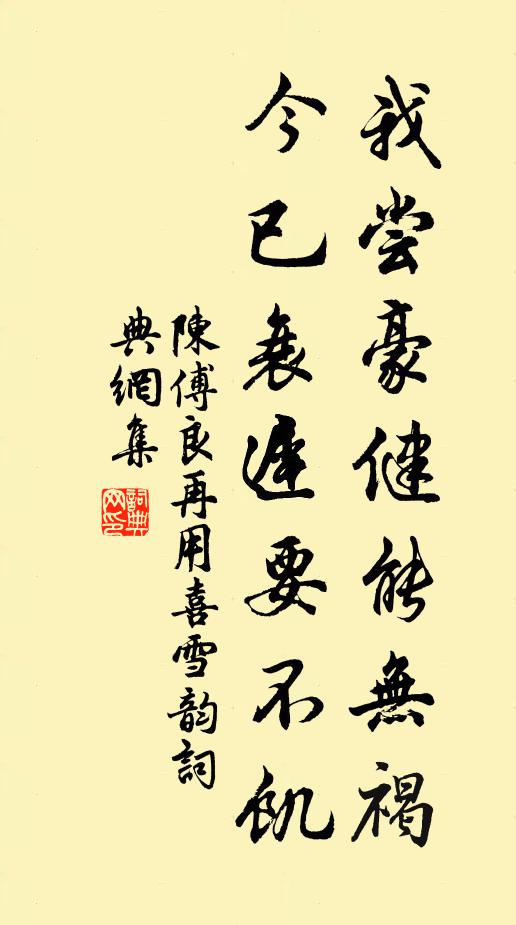 我尝豪健能無褐
今已衰遲要不飢
陳傅良再用喜雪韵詞
典網集
詞典網印